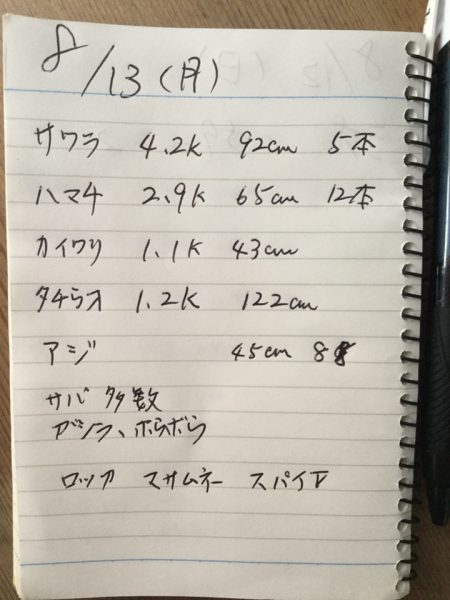 8/13 (月)
サワラ 4.2K 92cm 5本
ハマチ 2.9K 65cm 12本
カイワリ 1.1K 43cm
タチウオ 1.2K 122cm
アジ 45cm 8
サバ 多数
ガシラ、ボラボラ
ロッカ マサムネー スパイV